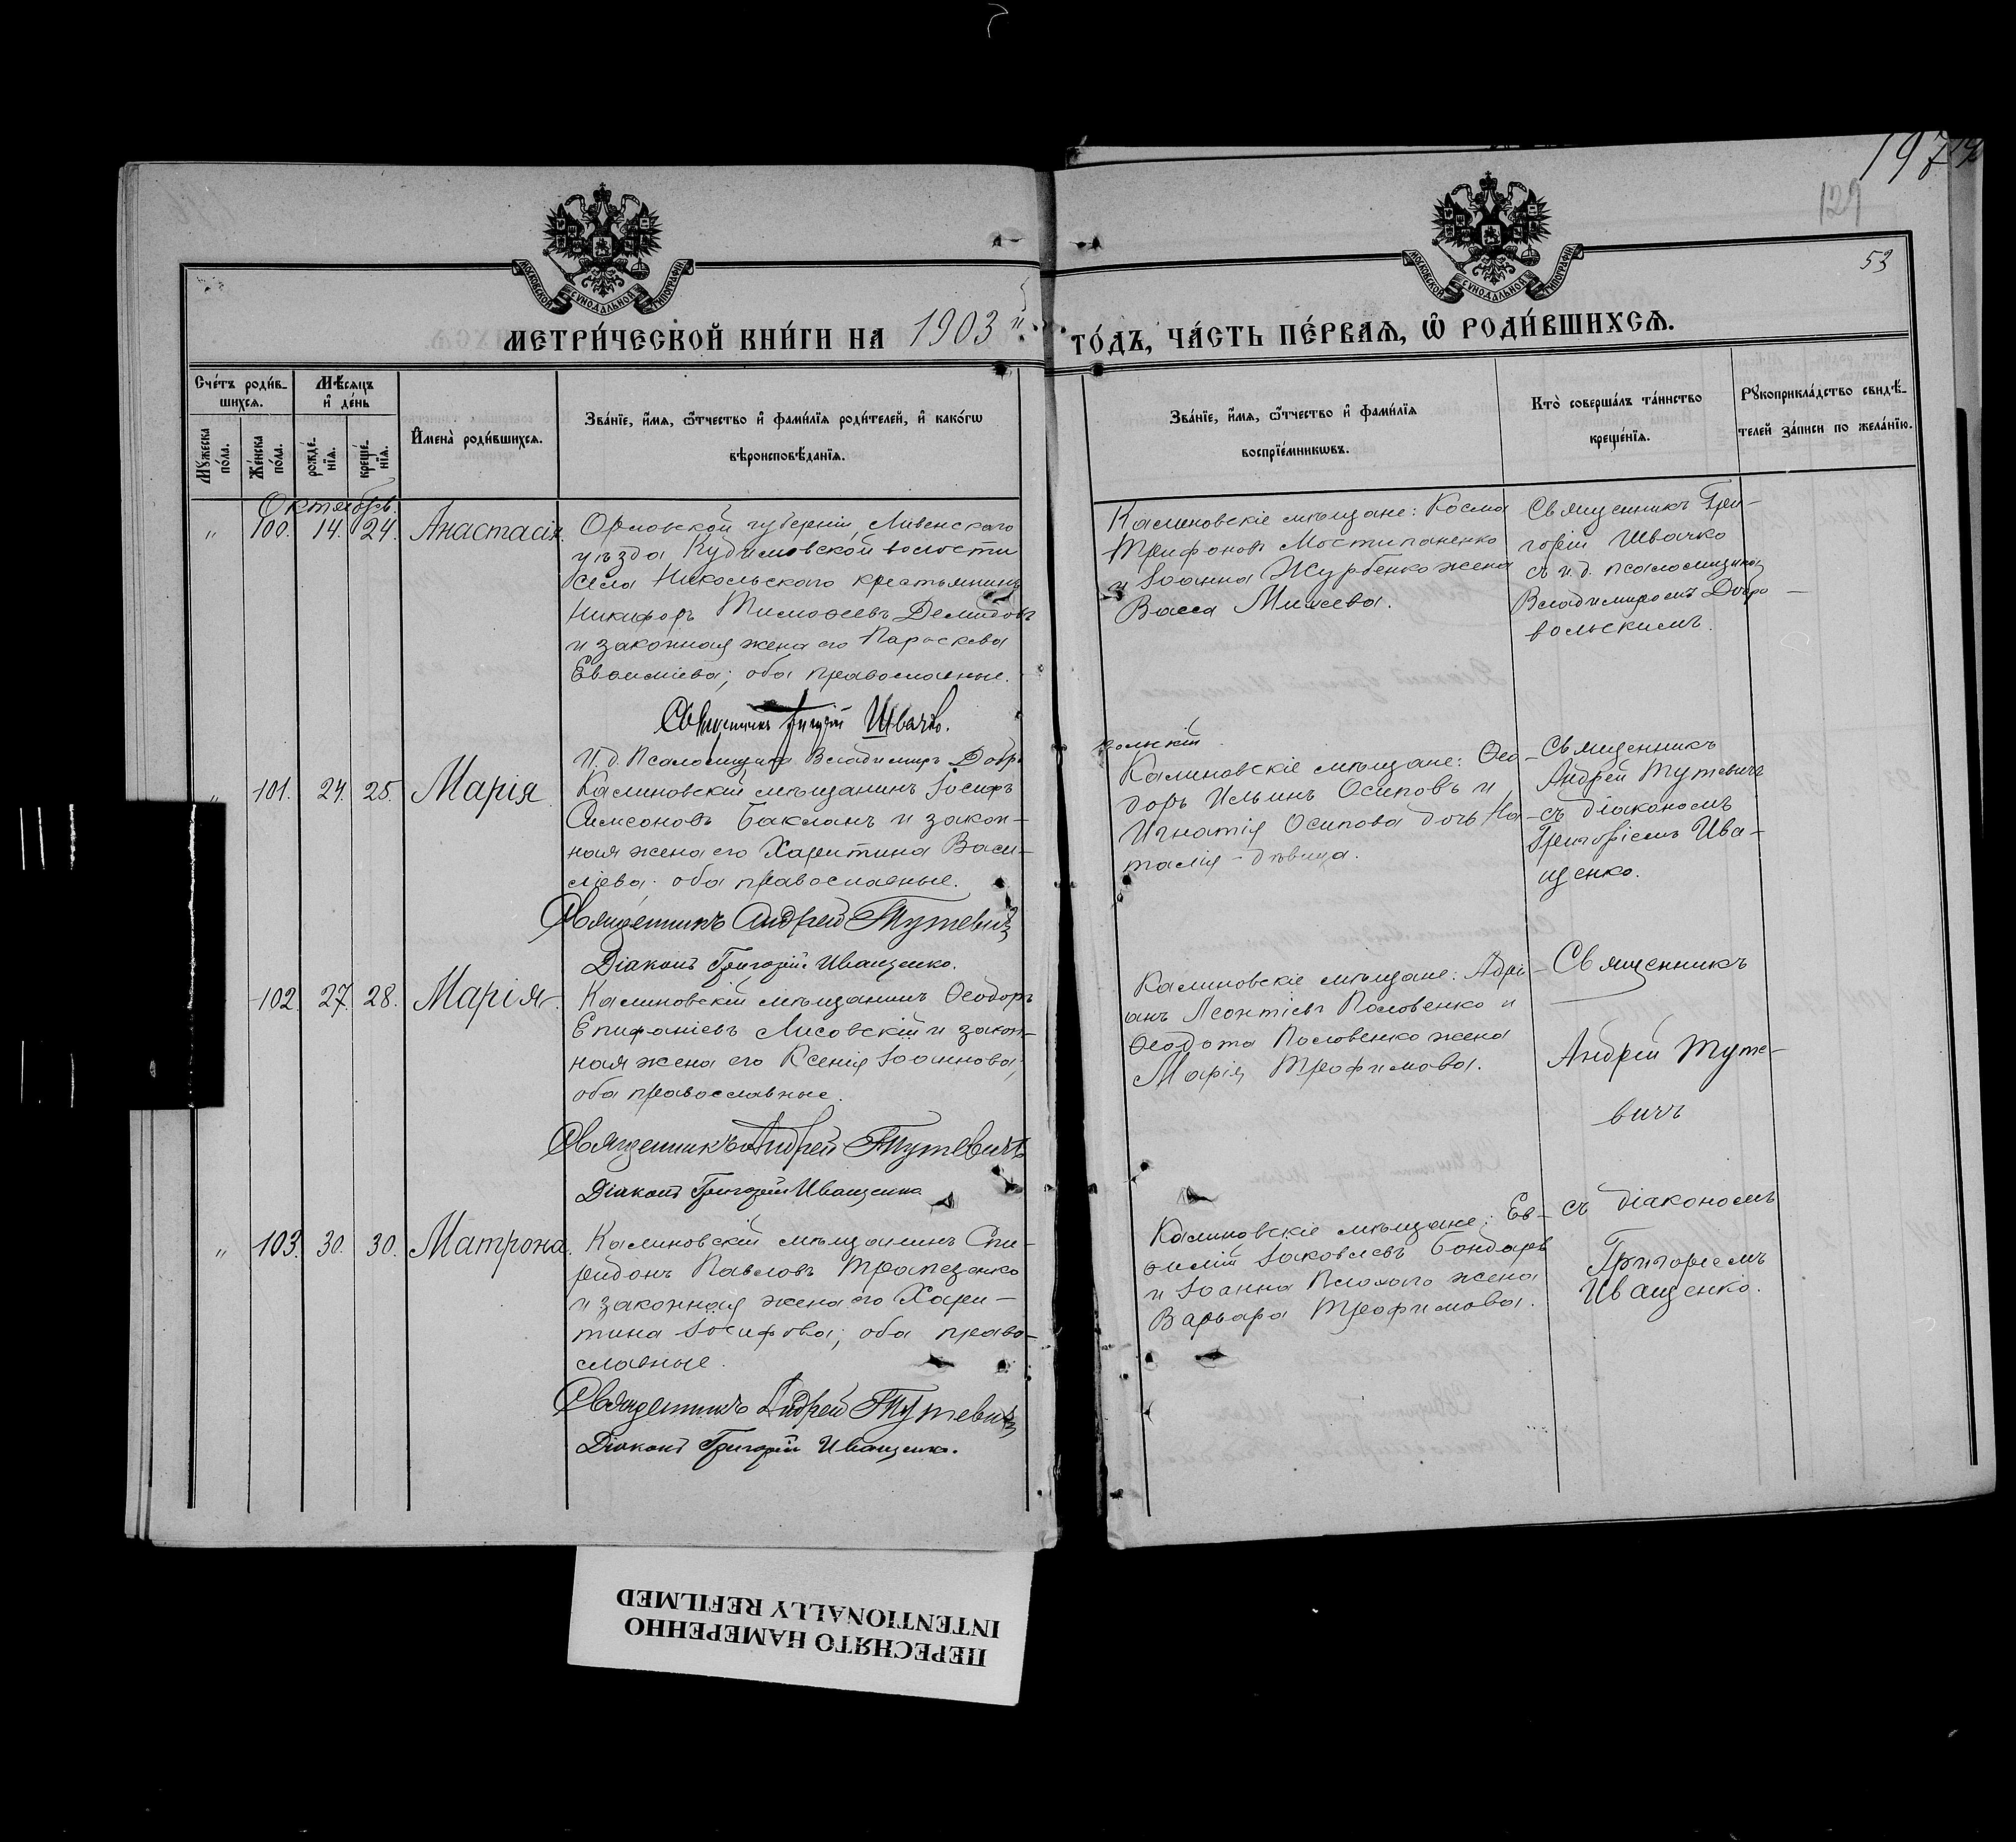 197
129
53
МОСКОВСКОЙ СУНОДАЛЬНОЙ ТИПОГРАФІИ
МОСКОВСКОЙ СУНОДАЛЬНОЙ ТИПОГРАФІИ
МЕТРИ́ЧЕСКОЙ КНИ́ГИ НА 1903 й
ГО́ДЪ, ЧА́СТЬ ПЕ́РВАѦ, Ѿ РОДИ́ВШИХСѦ.
Сче́тъ роди́в-
шихсѧ.
Мѣ́сѧцъ
и҆ де́нь
Мꙋ́жеска
по́ла.
Же́нска
по́ла.
рожде́-
нїѧ.
креще́-
нїѧ.
И҆мена̀ роди́вшихсѧ.
Зва́нїе, и҆́мѧ, ѻ҆́тчество и҆ фами́лїѧ роди́телей, и҆ како́гѡ
вѣроисповѣ́данїѧ.
Зва́нїе, и҆́мѧ, ѻ҆́тчество и҆ фами́лїѧ
воспрїе́мникѡвъ.
Кто̀ соверша́лъ та́инство
креще́нїѧ.
Рꙋкоприкла́дство свидѣ́-
телей за́писи по жела́нїю.
Октябрь.
„ 100. 14. 24. Анастасія.
Орловской губерніи, Ливенского
уѣзда Кудиновской волости
села Никольскаго крестьянинъ
Никифоръ Тимофеевъ Демидовъ
и законная жена его Параскева
Евфиміева; оба православные.
Священникъ Григорій Швачко.
И. д. Псаломщика Владимиръ Добро
Калиновскіе мѣщане: Косма
Трифоновъ Мостипаненко
и Іоанна Журбенко жена
Васса Михеева.
Священникъ Гри-
горій Швачко
съ и. д. псаломщика
Владимиромъ Добро-
вольскимъ.
вольскій.
„ 101. 24. 25. Марія
Калиновскій мѣщанинъ Іосифъ
Симеоновъ Бакланъ и закон-
ная жена его Харитина Васи-
ліева; оба православные.
Священникъ Андрей Тутевичъ
Діаконъ Григорій Иващенко.
Калиновскіе мѣщане: Ѳео-
доръ Ильинъ Осиповъ и
Игнатія Осипова дочь На-
талія - дѣвица.
Священникъ
Андрей Тутевичъ
съ діакономъ
Григоріемъ Ива-
щенко.
102. 27. 28. Марія.
Калиновскій мѣщанинъ Ѳеодоръ
Епифаніевъ Лисовскій и закон-
ная жена его Ксенія Іоаннова;
оба православные.
Священникъ Андрей Тутевичъ
Діаконъ Григорій Иващенко
Калиновскіе мѣщане: Адрі-
анъ Леонтіевъ Половенко и
Ѳеодота Половенко жена
Марія Трофимова.
Священникъ
Андрей Туте-
вичъ
„ 103. 30. 30. Матрона.
Калиновскій мѣщанинъ Спи-
ридонъ Павловъ Трапезенко
и законная жена его Хари-
тина Іосифова; оба право-
славные.
Священникъ Андрей Тутевичъ
Діаконъ Григорій Иващенко.
Калиновскіе мѣщане: Ев-
фимій Іаковлевъ Бондарь
и Іоанна Плохого жена
Варвара Трофимова.
съ діакономъ
Григоріемъ
Иващенко.
ПЕРЕСНЯТО НАМЕРЕННО
INTENTIONALLY REFILMED